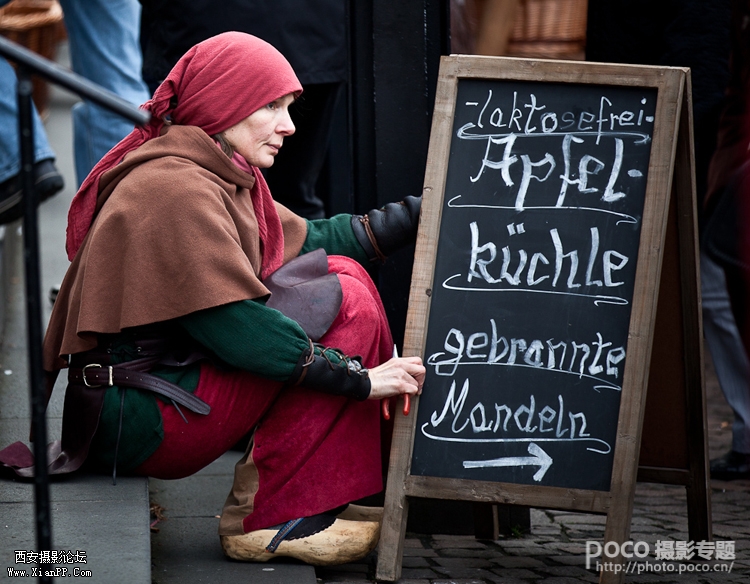 -laktosefrei-
Apfel-
küchle
gebrannte
Mandeln
西安摄影论坛
www.XianPP.Com
POCO 摄影专题
http://photo.poco.cn/